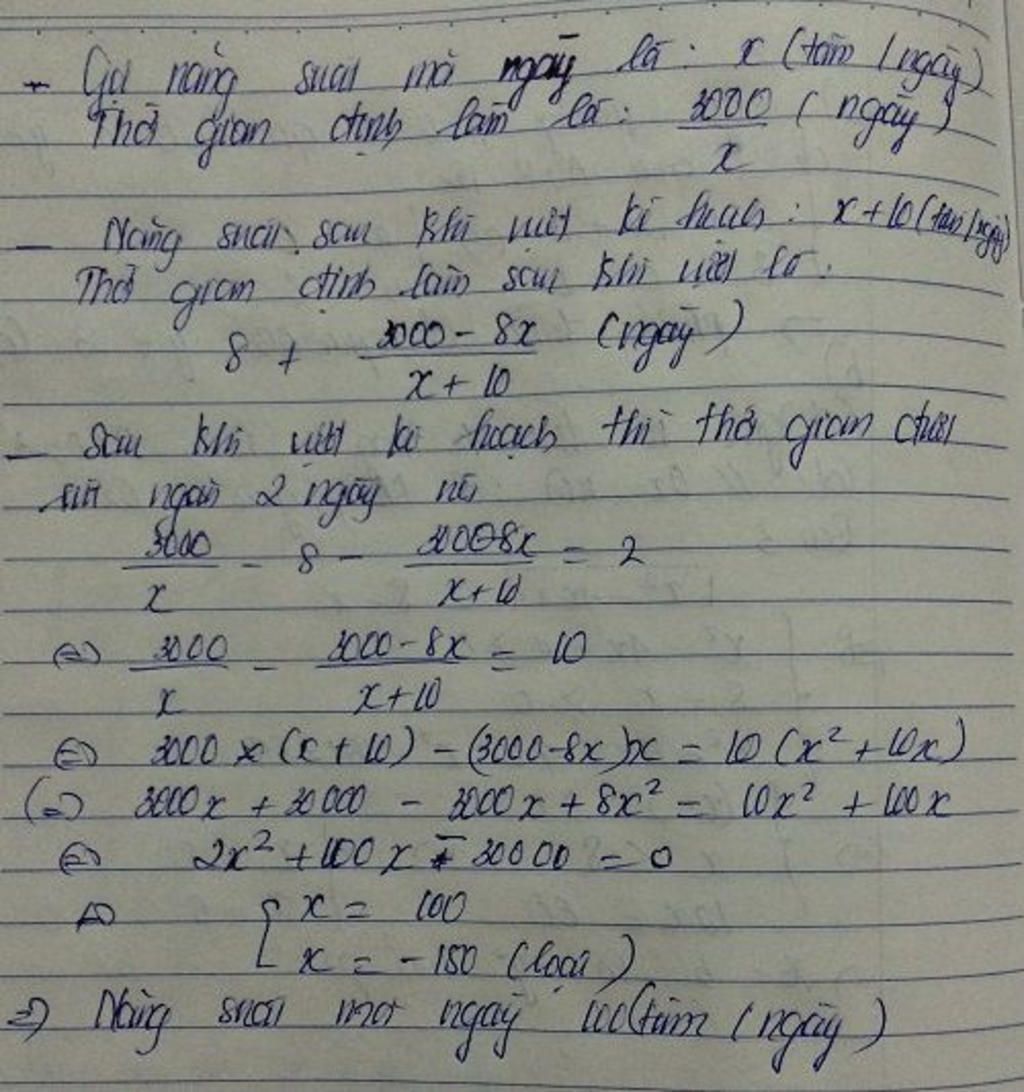 - Gọi năng suất mỗi ngày là: x (tấm / ngày)
Thời gian định làm là: 3000/x (ngày)
- Năng suất sau khi vượt kế hoạch: x + 10 (tấm / ngày)
Thời gian định làm sau khi vượt là:
8 + (3000 - 8x)/(x + 10) (ngày)
- Sau khi vượt kế hoạch thì thời gian được
rút ngắn 2 ngày nên
3000/x - 8 - (3000-8x)/(x+10) = 2
(=) 3000/x - (3000 - 8x)/(x+10) = 10
(=) 3000 × (x + 10) - (3000-8x)x = 10 (x² + 10x)
(=) 3000x + 30000 - 3000x + 8x² = 10x² + 100x
(=) 2x² + 100x - 30000 = 0
(=) [ x = 100
x = -150 (loại)
=) Năng suất một ngày 100 (tấm / ngày)